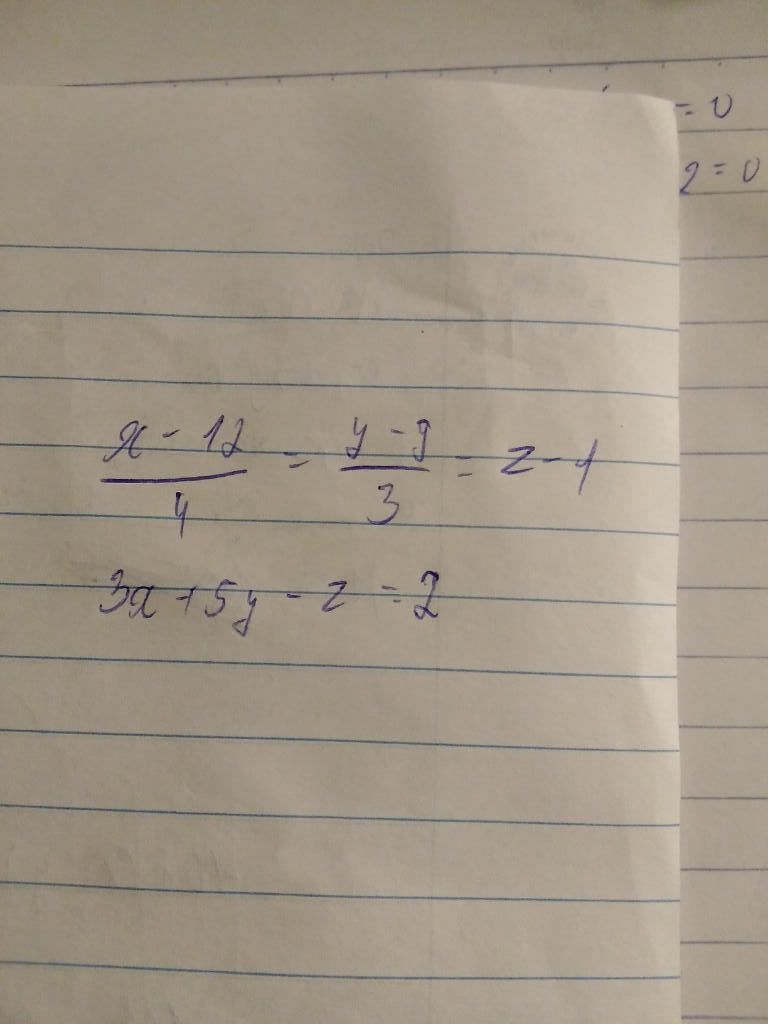 = 0
2 = 0
x - 12 / 4 = y - 9 / 3 = z - 1
3x + 5y - z = 2